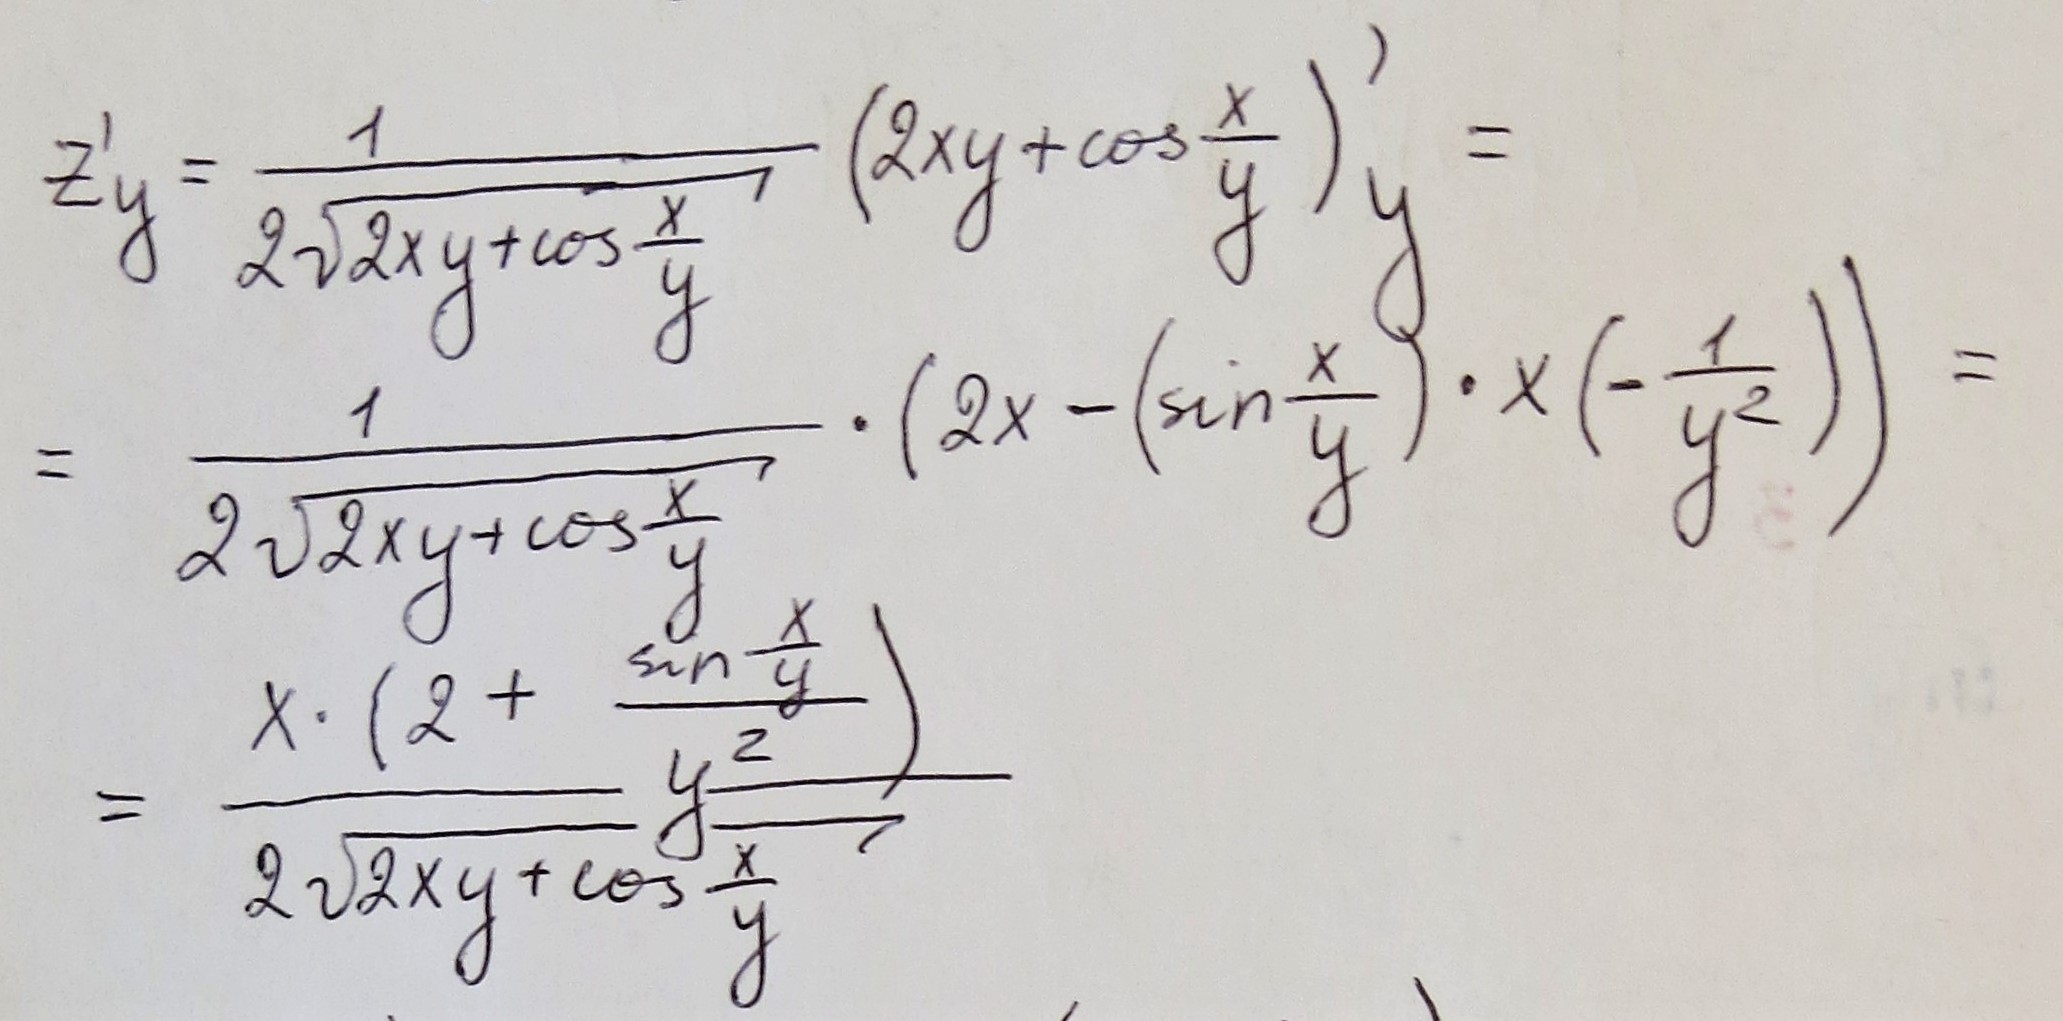 z'_y = \frac{1}{2\sqrt{2xy+\cos\frac{x}{y}}} \left(2xy+\cos\frac{x}{y}\right)'_y =
= \frac{1}{2\sqrt{2xy+\cos\frac{x}{y}}} \cdot \left(2x-\left(\sin\frac{x}{y}\right)\cdot x\left(-\frac{1}{y^2}\right)\right) =
= \frac{x\cdot\left(2+\frac{\sin\frac{x}{y}}{y^2}\right)}{2\sqrt{2xy+\cos\frac{x}{y}}}